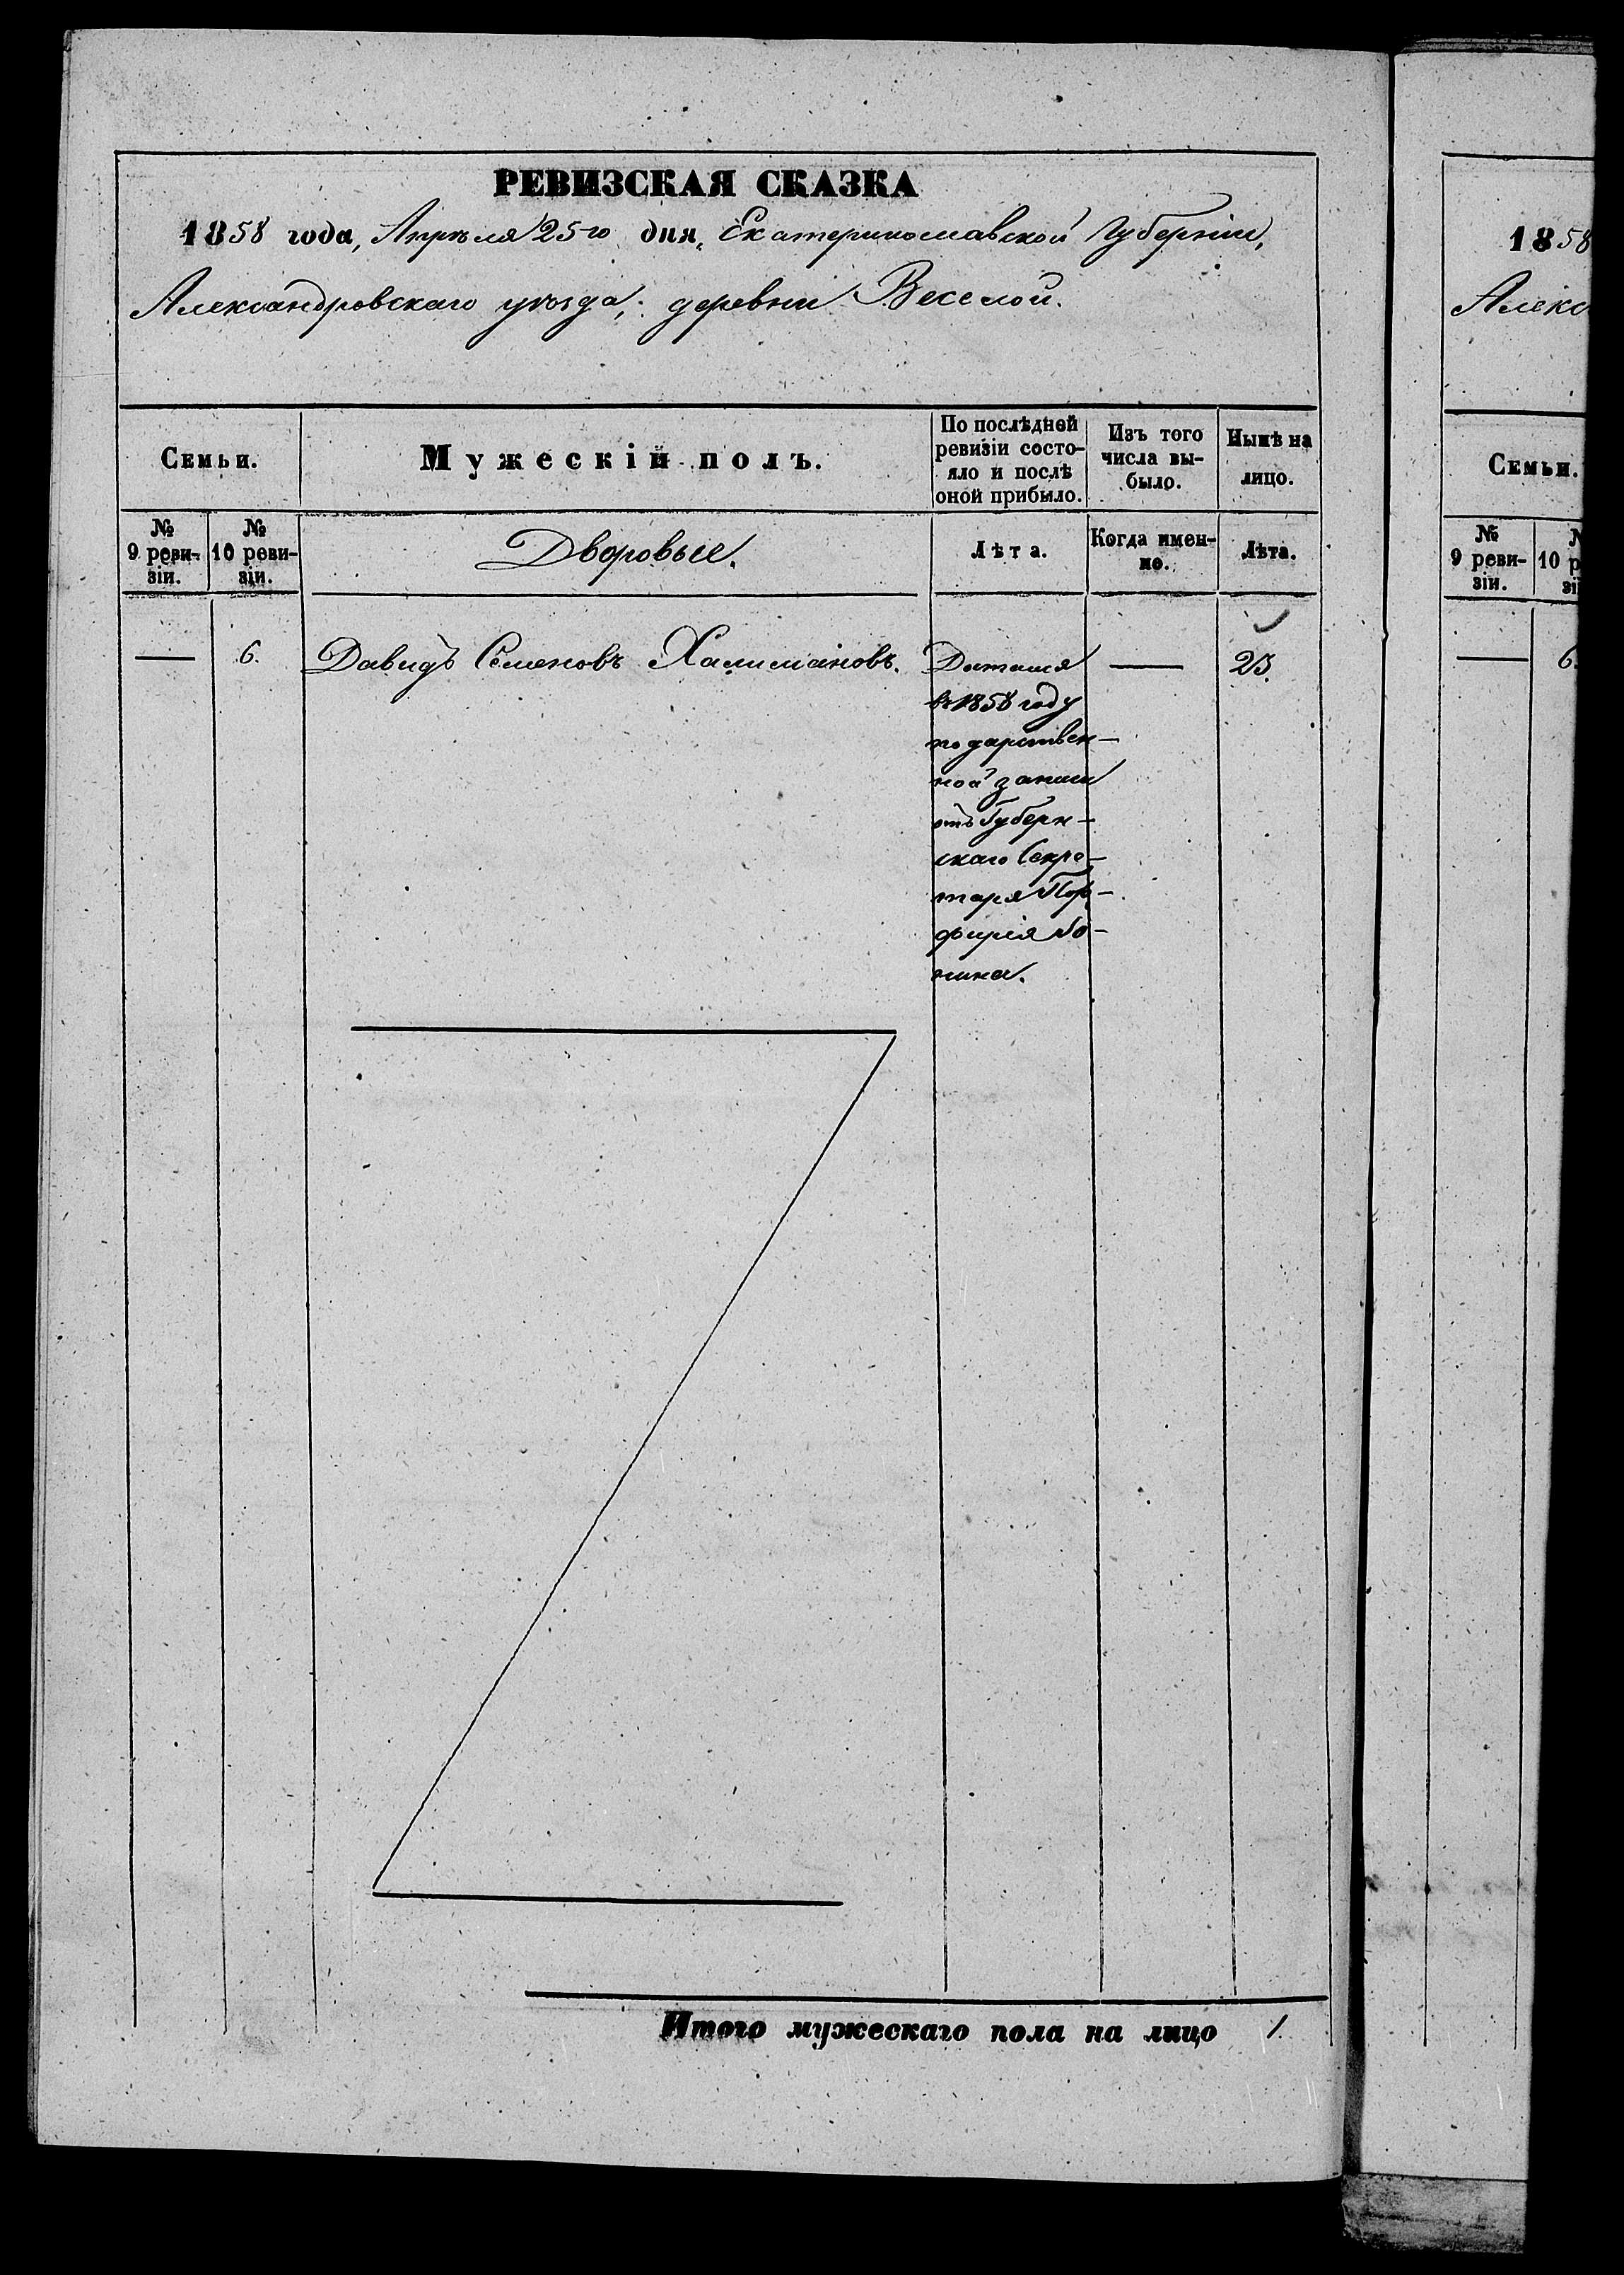 РЕВИЗСКАЯ СКАЗКА
1858 года, Апрѣля 25го дня, Екатеринославской Губерніи,
Александровскаго уѣзда, деревни Веселой.
Семьи.
Мужескій полъ.
По послѣдней
ревизіи состо-
яло и послѣ
оной прибыло.
Изъ того
числа вы-
было.
Нынѣ на
лицо.
№
9 реви-
зіи.
№
10 реви-
зіи.
Дворовые.
Лѣта.
Когда имен-
но.
Лѣта.
— 6. Давидъ Семеновъ Халимановъ. — 23.
Достался
въ 1858 году
по дарствен-
ной записи
отъ Губерн-
скаго Секре-
таря Пор-
фирія
Итого мужескаго пола на лицо 1.
1858
Алекс
Семьи.
№
9 реви-
зіи.
10 р
зі
— 6.